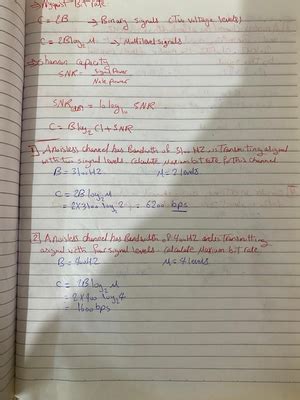 → Nyquist Bit rate
C = 2B → Binary signals (Two voltage levels)
C = 2B log₂ M → Multilevel signals
→ Shannon capacity
SNR = Signal Power
Noise Power
SNR = 10 log₁₀ SNR
C = B log₂ (1 + SNR
1 A noiseless channel has Bandwidth of 3100 HZ is Transmitting a signal
with two signal levels. calculate Maximum bit rate for this channel
B = 3100HZ M = 2 levels
C = 2B log₂ M
= 2 x 3100 log₂ 2 = 6200 bps
2 A noiseless channel has Bandwidth of 400 HZ and is Transmitting
a signal with four signal levels. calculate Maximum bit rate
B = 400HZ M = 4 levels
C = 2B log₂ M
= 2 x 400 log₂ 4
= 1600 bps